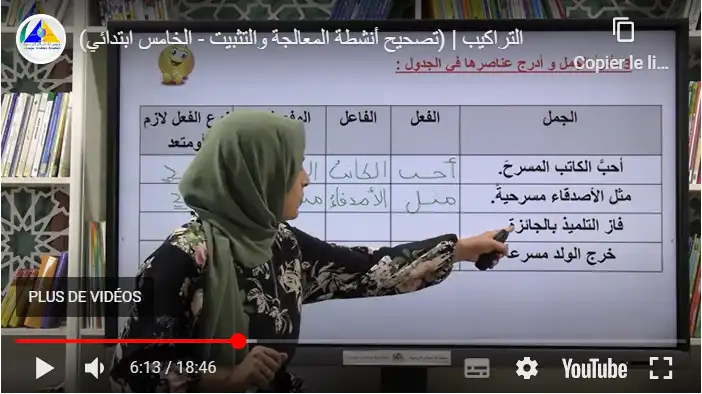 التراكيب | (تصحيح أنشطة المعالجة والتثبيت - الخامس ابتدائي)
Copier le li...
و أدرج عناصرها في الجدول :
الجمل الفعل الفاعل الفعل لازم
أومتعد
أحبَّ الكاتب المسرحَ. أحب الكاتب
مثل الأصدقاء مسرحيةً. مثل الأصدقاء
فاز التلميذ بالجائزة
خرج الولد
PLUS DE VIDÉOS
6:13 / 18:46
YouTube